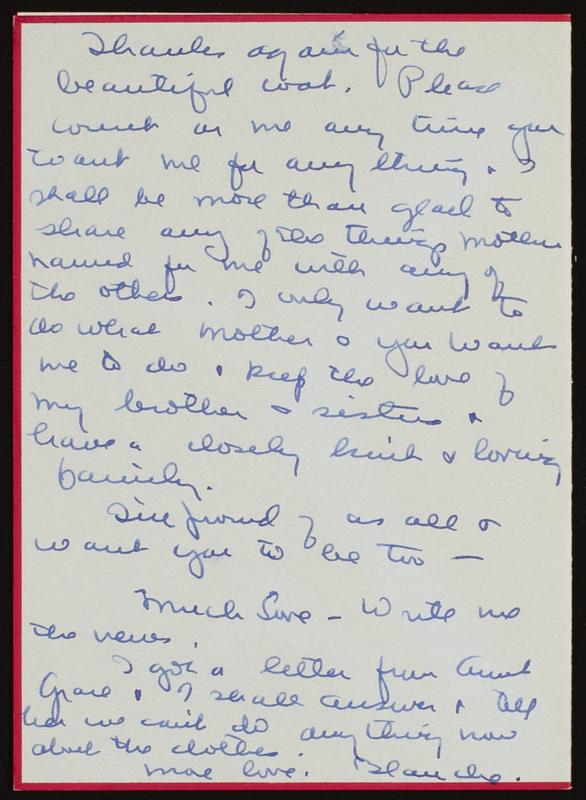 Thanks again for the
beautiful coat. Please
count on me any time you
want me for anything. I
shall be more than glad to
share any of the things Mother
named for me with any of
the others. I only want to
do what Mother & you want
me to do & keep the love of
my brother & sisters &
have a closely knit & loving
family.
I'm proud of us all &
want you to be too —
Much Love — Write me
the news.
I got a letter from Aunt
Grace & I shall answer & tell
her we can't do anything now
about the clothes.
more love. Blanche.